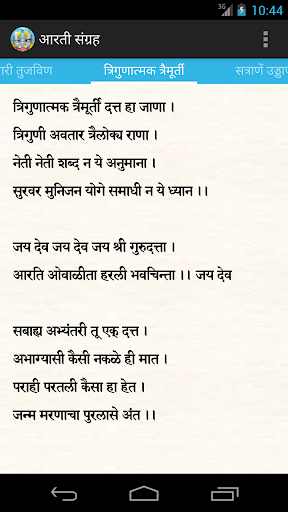 10:44
आरती संग्रह
ारी तुजविण त्रिगुणात्मक त्रैमूर्ती सत्राणें उड्डा
त्रिगुणात्मक त्रैमूर्ती दत्त हा जाणा ।
त्रिगुणी अवतार त्रैलोक्य राणा ।
नेती नेती शब्द न ये अनुमाना ।
सुरवर मुनिजन योगे समाधी न ये ध्यान ।।
जय देव जय देव जय श्री गुरुदत्ता ।
आरति ओवाळीता हरली भवचिन्ता ।। जय देव
सबाह्य अभ्यंतरी तू एक् दत्त ।
अभाग्यासी कैसी नकळे ही मात ।
पराही परतली कैसा हा हेत ।
जन्म मरणाचा पुरलासे अंत ।।